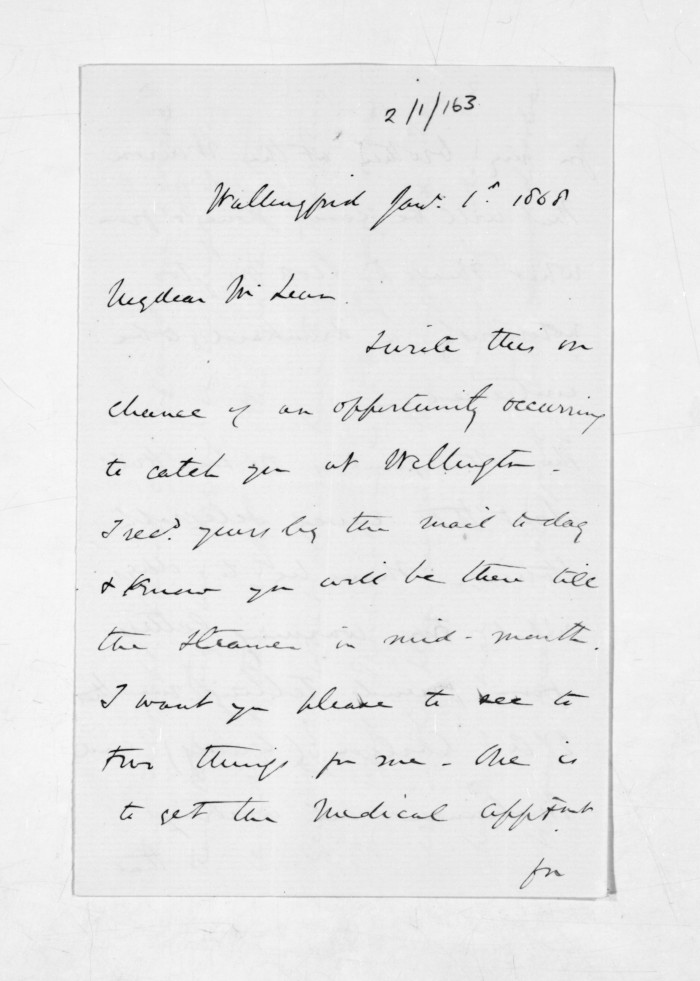 2/1/163
Wallingford Jany. 1st. 1868
My dear McLean.
I write this on
chance of an opportunity occurring
to catch you at Wellington.
I recd. yours by the mail today
& know you will be there till
the Steamer in mid-month.
I want you please to see to
two things for me - One is
to get the Medical apptmt
for